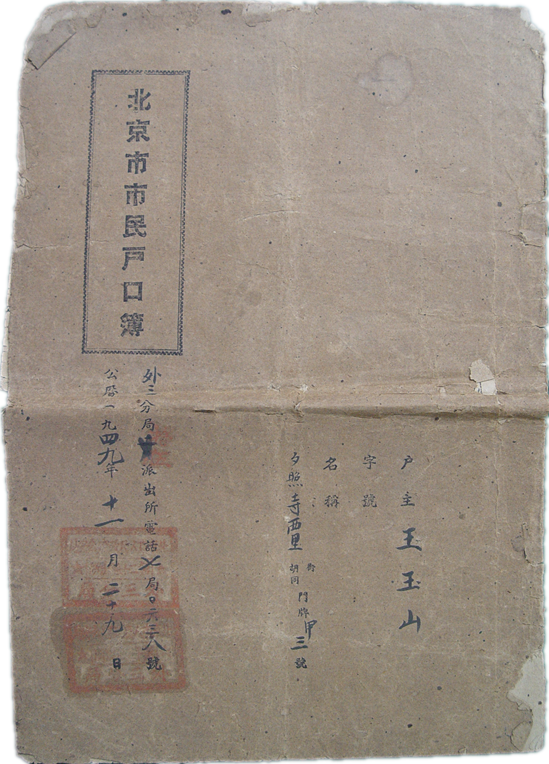 户主 王玉山
字號
名稱
夕照寺西里 街胡同 門牌甲三號
北京市市民戸口簿
外三分局 派出所電話 局〇六三八號
公曆一九四九年十一月二十九日